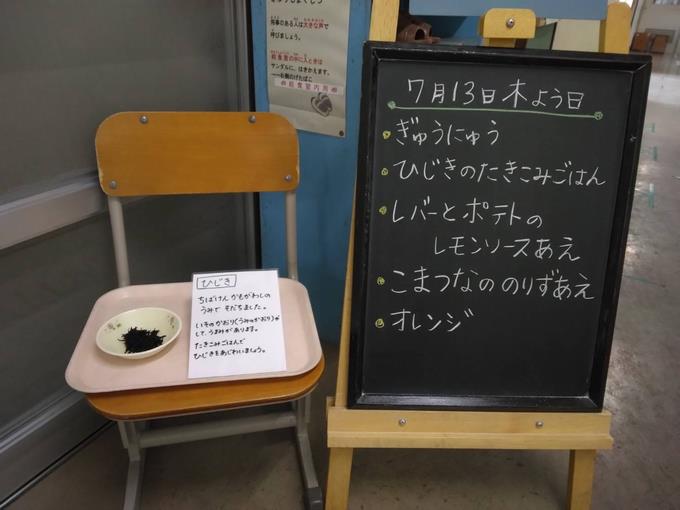 用事のある人は大きな声で
呼びましょう。
給食室の中に入るときは
サンダルに、はきかえます。
7月13日木よう日
ぎゅうにゅう
ひじきのたきこみごはん
レバーとポテトの
レモンソースあえ
こまつなの のりずあえ
オレンジ
ひじき
ちばけん かもがわしの
うみで そだちました。
いそのかおり(うみのかおり)が
して、うまみがあります。
たきこみごはんで
ひじきをあじわいましょう。